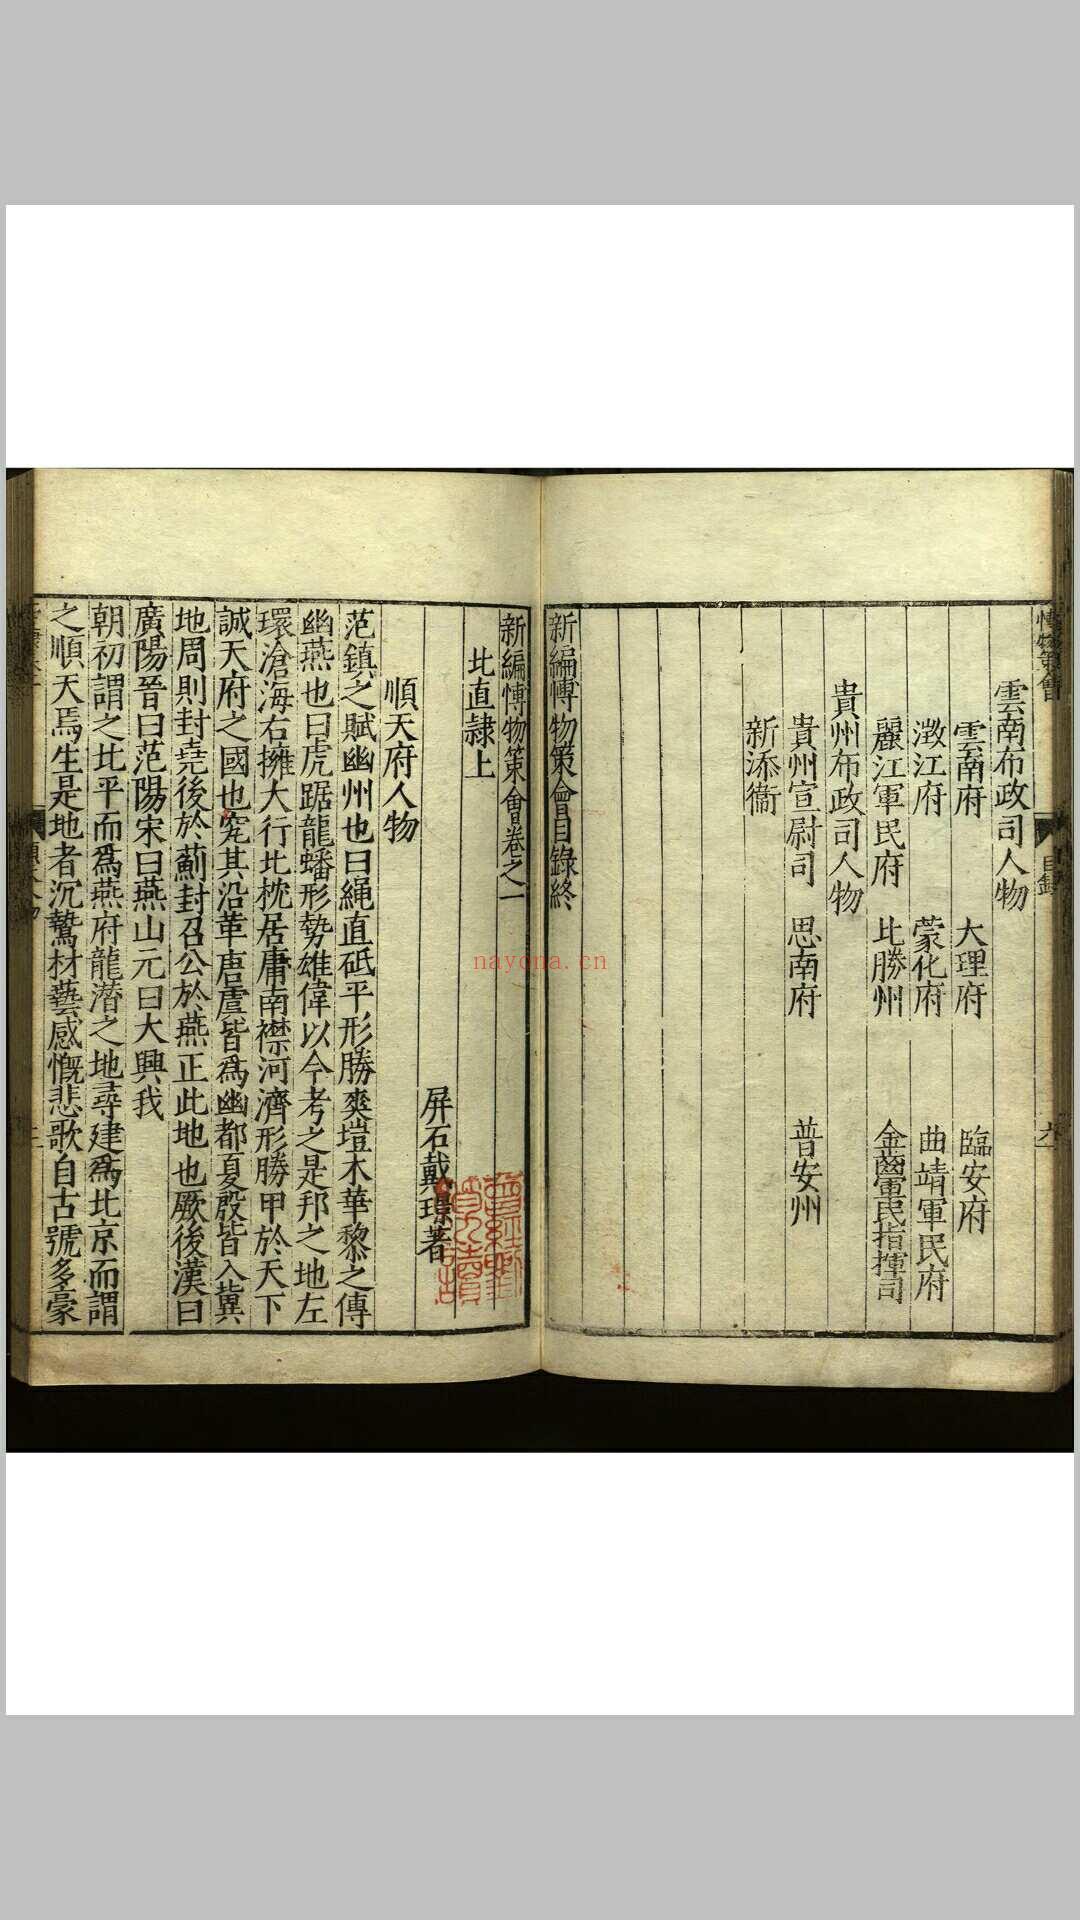 雲南布政司人物
雲南府 大理府 臨安府
澂江府 蒙化府 曲靖軍民府
麗江軍民府 北勝州 金齒軍民指揮司
貴州布政司人物
貴州宣尉司 思南府 普安州
新添衞
新編愽物策會目錄終
新編愽物策會卷之一
北直隷上
屏石戴璟著
順天府人物
范鎮之賦幽州也曰繩直砥平形勝爽塏木華黎之傳
幽燕也曰虎踞龍蟠形勢雄偉以今考之是邦之地左
環滄海右擁大行北枕居庸南襟河濟形勝甲於天下
誠天府之國也究其沿革唐虞皆為幽都夏殷皆入冀
地周則封堯後於薊封召公於燕正此地也厥後漢曰
廣陽晉曰范陽宋曰燕山元曰大興我
朝初謂之北平而為燕府龍潛之地尋建為北京而謂
之順天焉生是地者沉鷙材藝感慨悲歌自古號多豪
nayona.cn